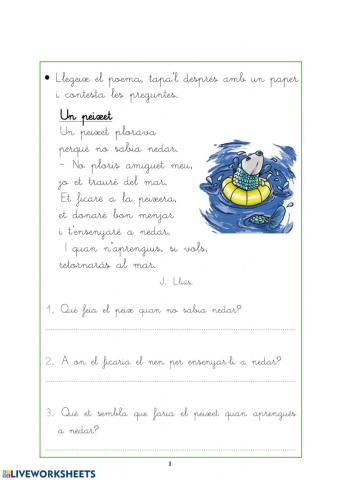 • Llegeix el poema, tapa'l després amb un paper
i contesta les preguntes.
Un peixet
Un peixet plorava
perquè no sabia nedar.
- No ploris amiguet meu,
jo et trauré del mar.
Et ficaré a la peixera,
et donaré bon menjar
i t'ensenyaré a nedar.
I quan n'aprenguis, si vols,
retornaràs al mar.
J. Llias.
1. Què feia el peix quan no sabia nedar?
2. A on el ficaria el nen per ensenyar-li a nedar?
3. Què et sembla que faria el peixet quan aprengués
a nedar?
1
LIVEWORKSHEETS